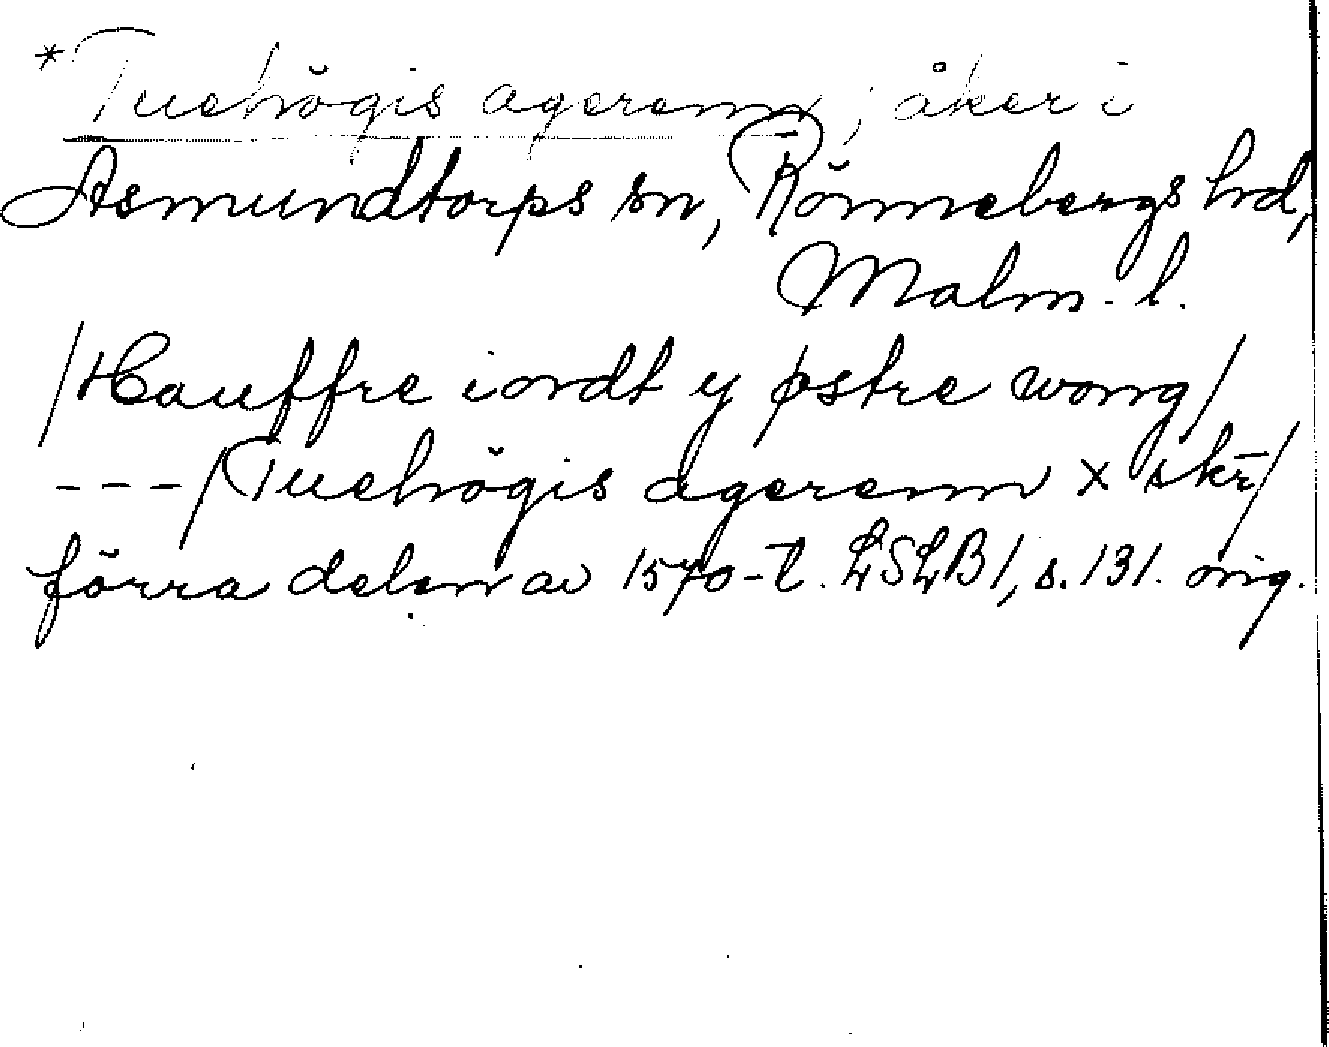 *Tuehögis agerenn, åker i
Asmundtorps sn, Rönnebergs hd,
Malm. l.
/Hauffre iordt y østre wong/
---/Tuehögis agerenn x skr/
förra delen av 1570-t. LSLB1, s. 131. orig.